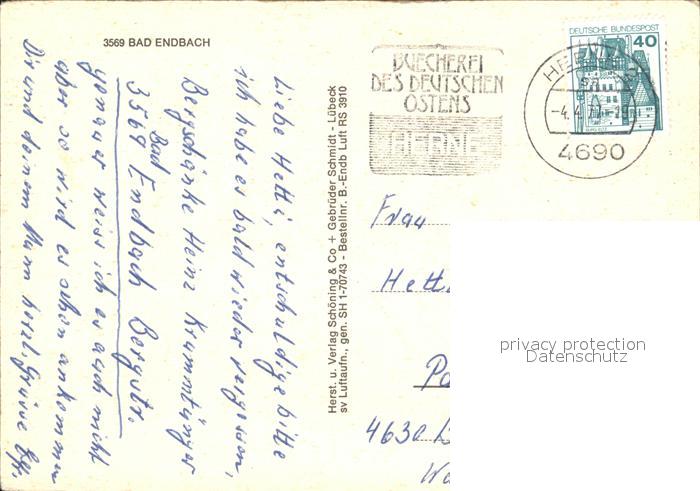 3569 BAD ENDBACH
Liebe Hetti, entschuldige bitte
ich habe es bald wieder vergessen,
Bergschänke Heinz
3569 Bad Endbach Bergstr.
genauer weiss ich es auch nicht
aber so wird es schon ankommen
Dir und deinem Mann herzl. Grüsse
Herst. u. Verlag Schöning & Co + Gebrüder Schmidt - Lübeck
sv Luftaufn., gen. SH 1-70743 - Bestellnr. B.-Endb Luft RS 3910
BUECHEREI
DES DEUTSCHEN
OSTENS
HERNE
DEUTSCHE BUNDESPOST
40
HERNE
-4.4.
4690
Frau
Hett
Po
4630
privacy protection
Datenschutz